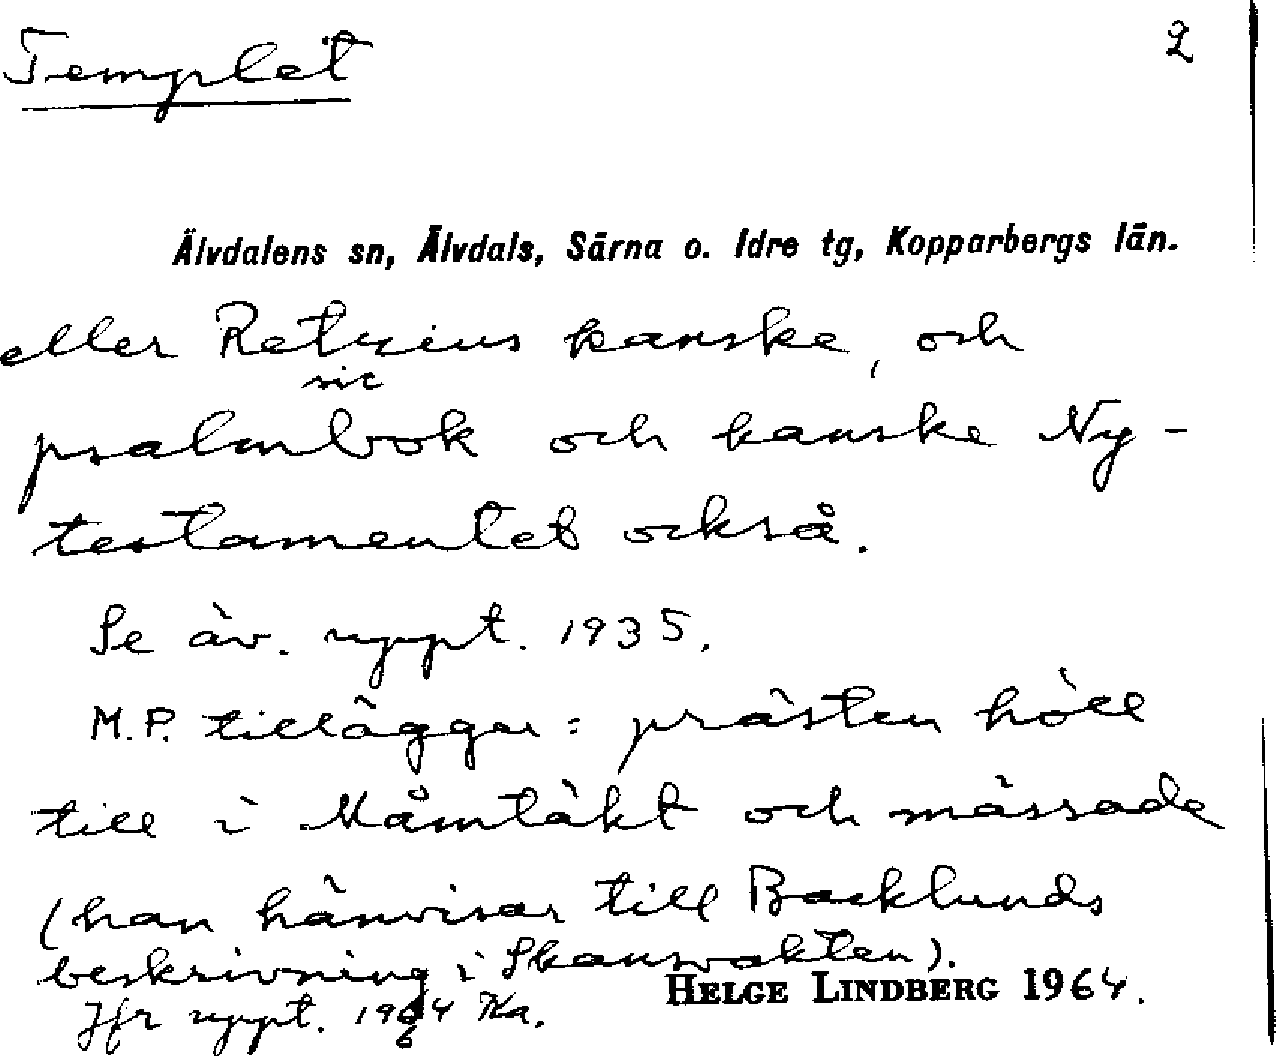 Templet 2
Älvdalens sn, Älvdals, Särna o. Idre tg, Kopparbergs län.
eller Retzius kanske, och
sic
psalmbok och kanske Ny-
testamentet också.
Se äv. uppt. 1935.
M.P. tillägger: prästen höll
till i Måmtäkt och mässade
(han hänvisar till Backlunds
beskrivning i Skansvakten).
HELGE LINDBERG 1964.
Jfr uppt. 1964